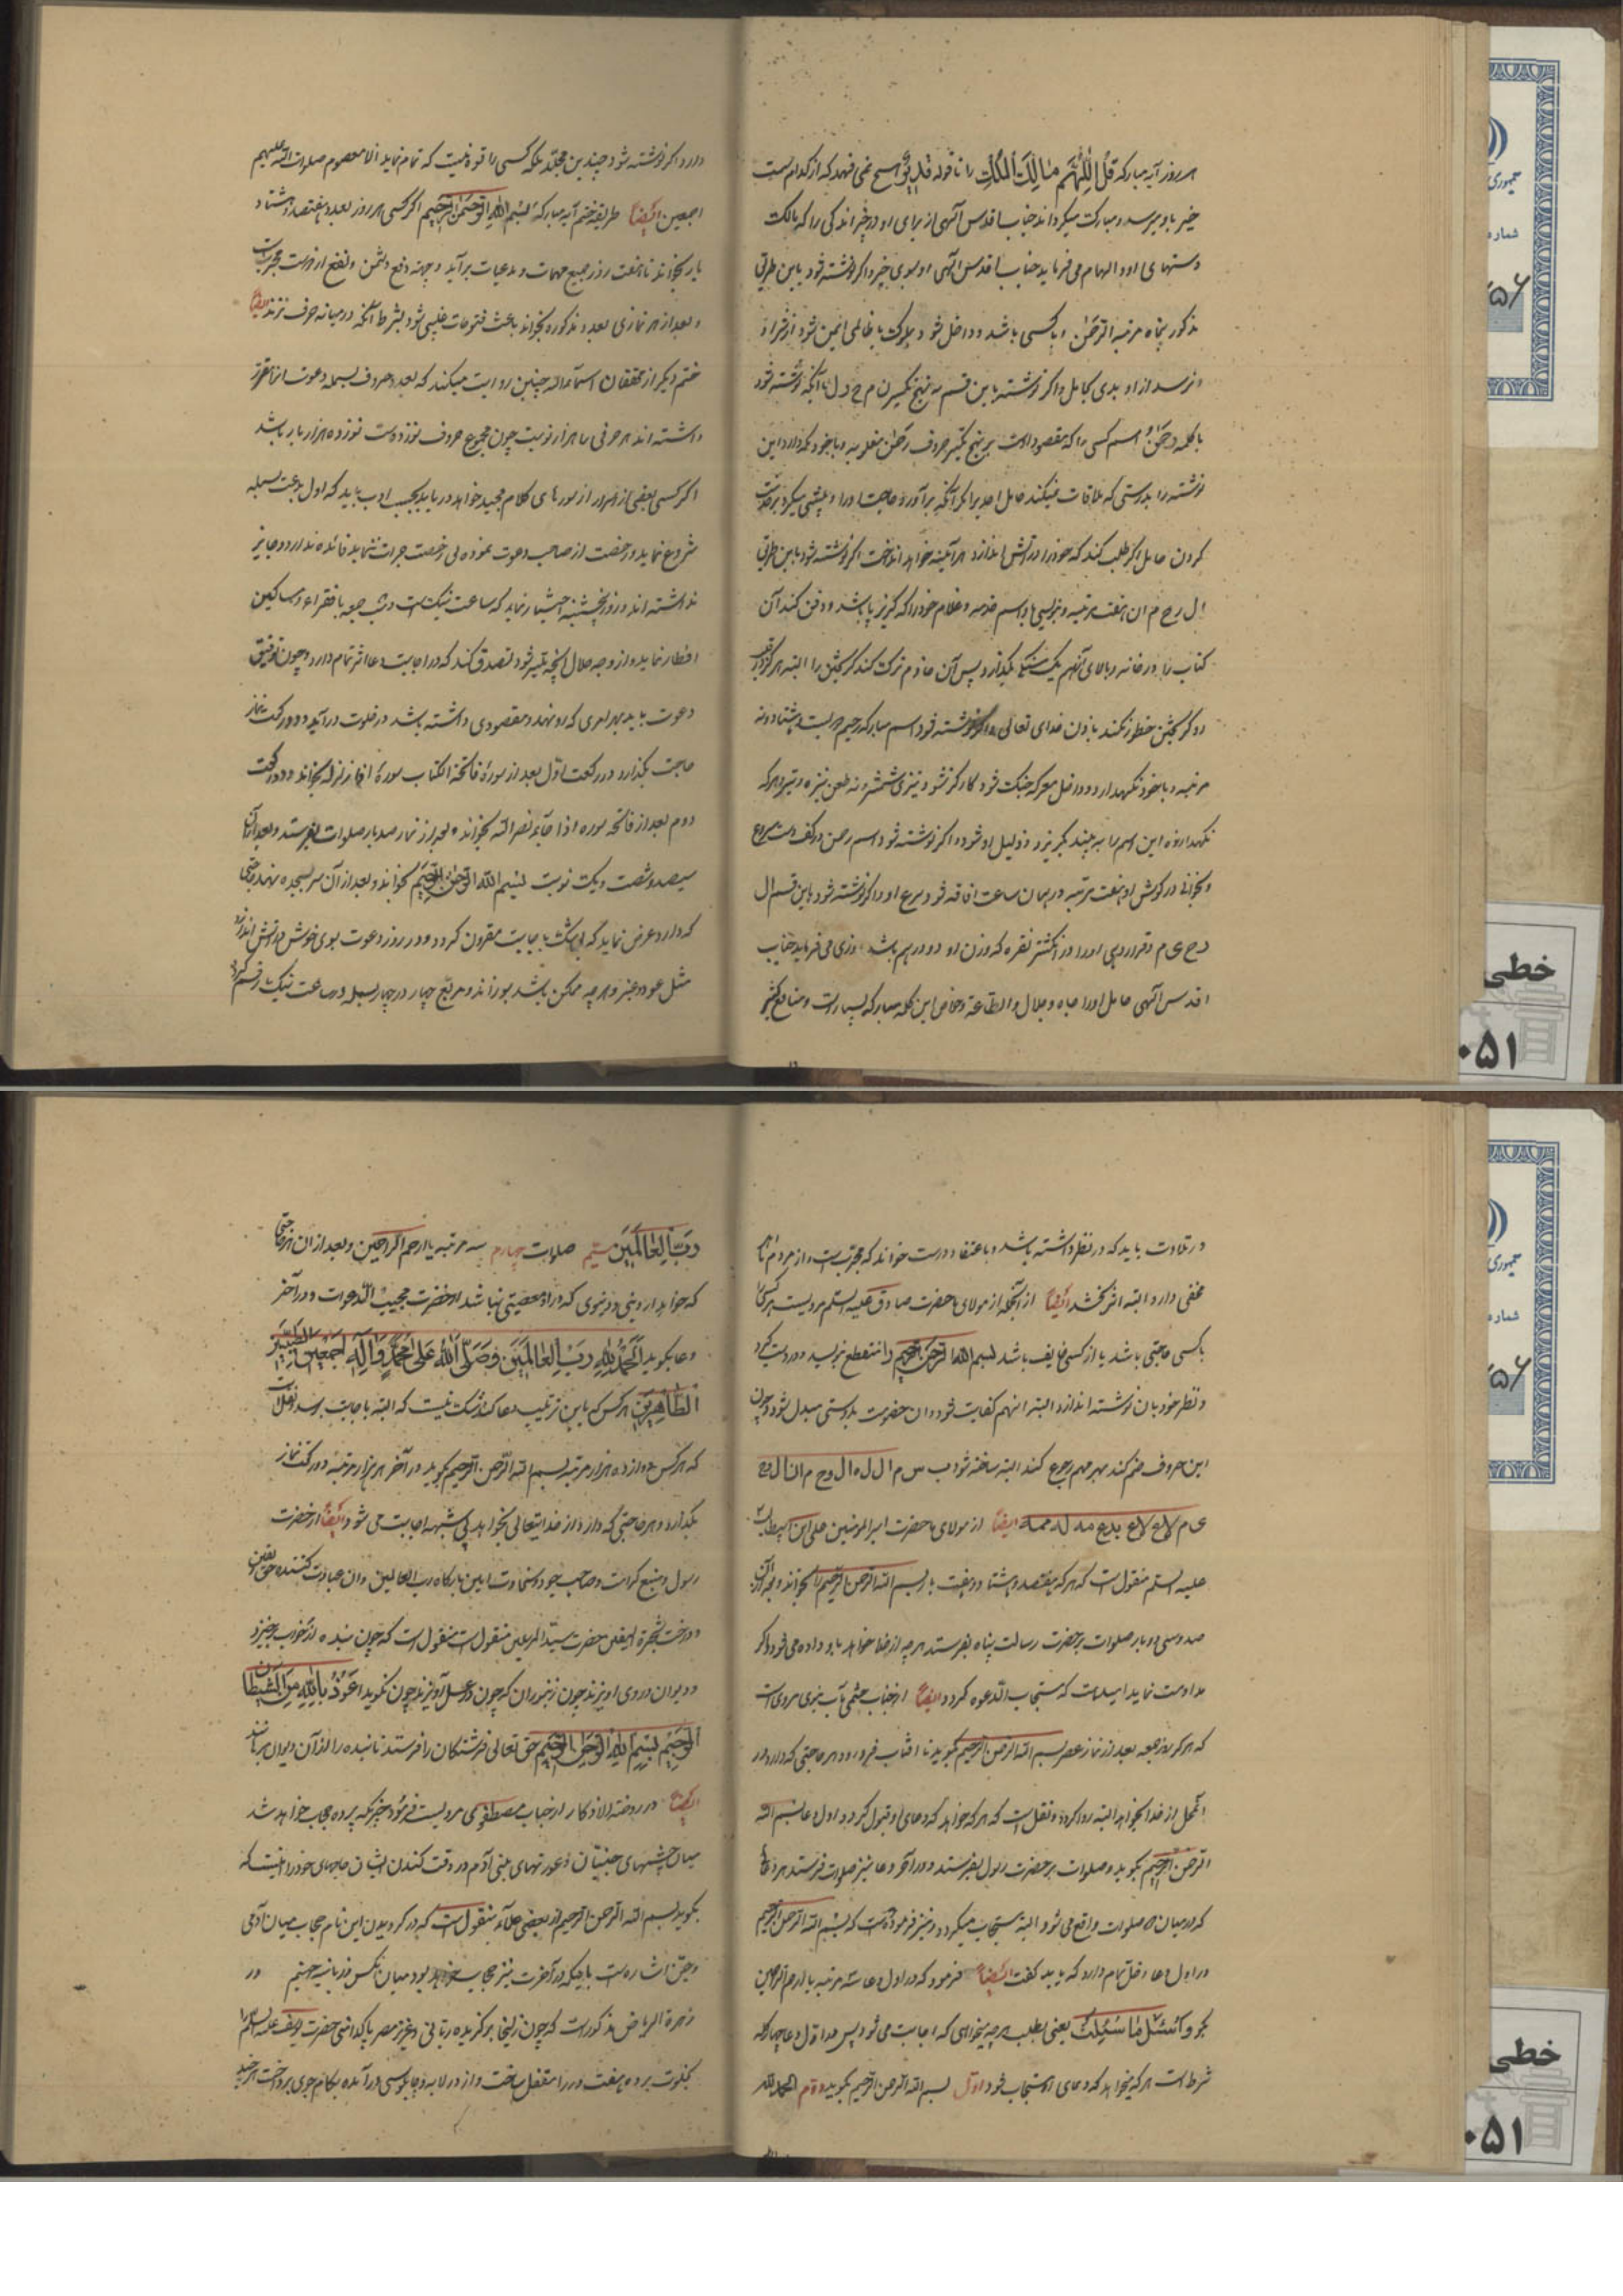 هر روز آیه مبارکه قُلِ اللّٰهُمَّ مَالِكَ الْمُلْكِ را تا قوله قدیر نمی فهمد که از کدام سمت
خیر باو میرسد و مبارکت میکرداند جناب اقدس آلهی از برای او
دستهای او و الهام می فرماید جناب اقدس آلهی او بسوی خیر و اکر نوشته شود باین طریق
مذکور پنجاه مرتبه الرحمن و با کسی باشد و داخل شود بملوک یا ظالمی ایمن شود از شر او
و نرسد از او بدی بحامل و اکر نوشته باین قسم به نهج تکسیر ن م ح ر ل ا آنکه نوشته شود
با کلمه رحمن اسم کسی را که مقصود است بر نهج تکسیر حروف رحمن مقلوبه و با خود نکه دارد این
نوشته را بدرستی که ملاقات نمیکند حامل احدیرا مکر آنکه برآورد حاجت او را
کردن حامل اکر طلب کند که خود را در آتش اندازد هر آینه خواهد انداخت اکر نوشته شود باین طریق
ال ر ح م ا ن هفت مرتبه و بنویسی با اسم خدمه و غلام خود را که کریز پا باشد و دفن کند آن
کتاب را در خانه و بالای آنهم یک سنک بکذارد پس آن خادم ترک کند کریختن را البته
و کریختن خطور نکند باذن خدای تعالی و اکر نوشته شود اسم مبارک رحیم دویست و هشتاد و نه
مرتبه و با خود نکهدارد و داخل معرکه جنک شود کارکر نشود تیزی شمشیر و نه طعن نیزه و تیر و هر که
نکهدارنده این اسم را به بیند بکریزد و ذلیل او شود و اکر نوشته شود اسم رحمن در کف دست مصروع
و بخوانی در کوش او هفت مرتبه در همان ساعت افاقه شود مصروع او و اکر نوشته شود باین قسم ال
ر ح ی م و قرار دهی او را در انکشتر نقره که وزن او دو درهم باشد روزی می فرماید جناب
اقدس آلهی حامل او را جاه و جلال و الطاعه و خواص این کلمه مبارکه بسیار است و منافع کثیر
دارد اکر نوشته شود چندین مجلد بلکه کسی را قوه نیست که تمام نماید الا معصوم صلوات الله علیهم
اجمعین ایضاً طریقه ختم آیه مبارکه بسم الله الرحمن الرحیم اکر کسی هر روز بعدد هفتصد و هشتاد
بار بخواند تا هفت روز جمیع مهمات و مدعیات برآید و جهته دفع دشمن و نفع از دوست مجربست
و بعد از هر نمازی بعدد مذکوره بخواند باعث فتوحات غیبی شود بشرط آنکه در میانه حرف نزند ایضاً
ختم دیکر از محققان اسماء اله چنین روایت میکنند که بعدد حروف بسمله دعوت
داشته اند هر حرفی را هزار نوبت چون مجموع حروف نوزده است نوزده هزار بار باشد
اکر کسی بعضی از اسرار از سورهای کلام مجید خواهد دریابد بحسب ادب باید که اول بدعوت بسمله
شروع نماید و رخصت از صاحب دعوت نموده بی رخصت جرات ننماید فائده ندارد و جایز
نداشته اند و روز پنجشنبه اختیار نماید که ساعت نیک است و شب جمعه با فقراء و مساکین
افطار نماید و از وجه حلال آنچه میسر شود تصدق کند که در اجابت دعا اثر تمام دارد و چون توفیق
دعوت یابد بهر امری که رو نهد و مقصودی داشته باشد در خلوت درآید و دو رکعت نماز
حاجت بکذارد در رکعت اول بعد از سوره فاتحة الکتاب سوره اذا زلزله بخواند و در رکعت
دوم بعد از فاتحه سوره اذا جاء نصرالله بخواند و بعد از نماز صد بار صلوات بفرستد و بعد از آن
سیصد و شصت و یک نوبت بسم الله الرحمن الرحیم بخواند و بعد از آن سر بسجده نهد و حاجتی
که دارد عرض نماید که بی شک باجابت مقرون کردد و در روز دعوت بوی خوش در آتش اندازد
مثل عود و عنبر و هر چه ممکن باشد بسوزاند و مربع چهار در چهار بسمله در ساعت نیک رقم کند
در تلاوت باید که در نظر داشته باشد و باعتقاد درست خواند که مجربست و از مردم نااهل
مخفی دارد البته اثر بخشد ایضاً از آنجمله از مولای ما حضرت صادق علیه السلم مرویست هر کس را
با کسی حاجتی باشد یا از کسی خایف باشد بسم الله الرحمن الرحیم را منقطع نویسد و در دست کیرد
و نظر خود بان نوشته اندازد البته آنهم کفایت شود و آن خصومت بدوستی مبدل شود و چون
این حروف ختم کند بهر مهم رجوع کند البته ساخته شود ب س م ا ل ل ه ا ل ر ح م ا ن ا ل ر ح
ی م ایضاً از مولای ما حضرت امیرالمومنین علی ابن ابیطالب
علیه السلم منقول است که هر که هفتصد و هشتاد و هفت بار بسم الله الرحمن الرحیم را بخواند و بعد از آن
صد و سی و دو بار صلوات بر حضرت رسالت پناه بفرستد هر چه از خدا خواهد باو داده می شود و اکر
مداومت نماید امید است که مستجاب الدعوه کردد ایضاً از جناب ختمی مآب نبوی مرویست
که هر که روز جمعه بعد از نماز عصر بسم الله الرحمن الرحیم بکوید تا آفتاب فرو رود هر حاجتی که دارد در
آنمحل از خدا بخواهد البته روا کردد و نقل است که هر که خواهد که دعای او قبول کردد اول دعا بسم الله
الرحمن الرحیم بکوید و صلوات بر حضرت رسول بفرستد و در آخر دعا نیز صلوات فرستد هر دعا
که در میان دو صلوات واقع می شود البته مستجاب میکردد و نیز فرموده است که بسم الله الرحمن الرحیم
در اول دعا دخل تمام دارد که باید کفت ایضاً فرمود که در اول دعا سه مرتبه یا ارحم الراحمین
بکو و اسئل ما سئلت یعنی بطلب هر چه میخواهی که اجابت می شود پس در اول دعا چهار کلمه
شرط است هر که میخواهد که دعای او مستجاب شود اول بسم الله الرحمن الرحیم بکوید دوم الحمد لله
ربّ العالمین سیم صلوات چهارم سه مرتبه یا ارحم الراحمین و بعد از ان هر حاجتی
که خواهد از دینی و دنیوی که در او معصیتی نباشد از حضرت مجیب الدعوات و در آخر
دعا بکوید الحمد لله رب العالمین و صلی الله علی محمد و آله اجمعین الطیبین
الطاهرین هر کس که باین ترتیب دعا کند شک نیست که البته باجابت برسد و نقلست
که هر کس دوازده هزار مرتبه بسم الله الرحمن الرحیم بکوید در آخر هر هزار مرتبه دو رکعت نماز
بکذارد و هر حاجتی که دارد از خدایتعالی بخواهد بی شبهه اجابت می شود ایضاً از حضرت
رسول و منبع کرامت و صاحب جود و سخاوت امین بارکاه رب العالمین و ان عبادت کننده حق الیقین
و درخت شجرة الیقین حضرت سید المرسلین منقول است که چون بنده از خواب برخیزد
و دیوان در وی آویزند چون زنبوران که چون در عسل آویزند چون بکوید اعوذ بالله من الشیطان
الرجیم بسم الله الرحمن الرحیم حق تعالی فرشتکان را فرستد تا بنده را از آن دیوان برهانند
ایضاً در روضة الاذکار از جناب مصطفوی مرویست فرمود چیزیکه پرده حجاب خواهد شد
میان چشمهای جنیان و عورتهای بنی آدم در وقت کندن ایشان جامهای خود را اینست که
بکوید بسم الله الرحمن الرحیم از بعضی علماء منقول است که در کردیدن این نام حجاب میان آدمی
و جن اشاره است باینکه در آخرت نیز حجاب خواهد بود میان آنکس و زبانیه جهنم در
زهرة الریاض مذکور است که چون زلیخا برکزیده ربانی و عزیز مصر پاکدامنی حضرت یوسف علیه السلم را
بخلوت برده هفت در را مقفل ساخت و از در لابه و چاپلوسی درآمده بکام جوی پرداخت
خطی
۰۵۱
جمهوری
شماره
۵۶
خطی
۰۵۱